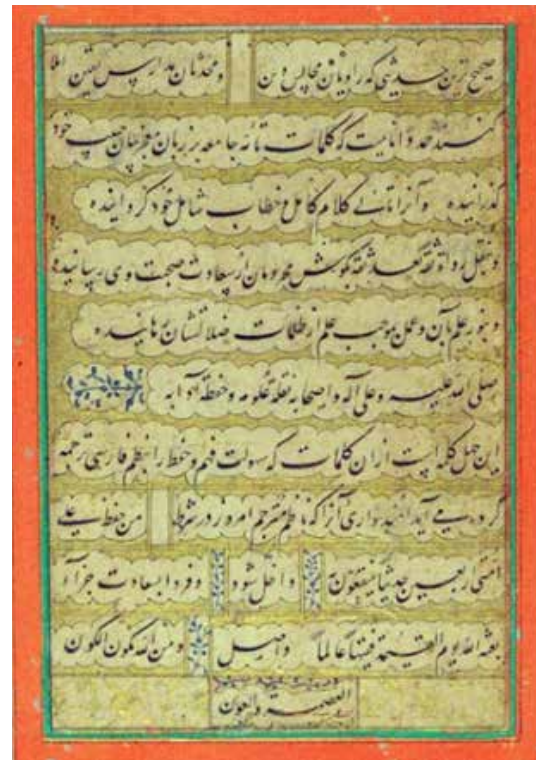 صحیح ترین حدیثی که راویان مجالس دین و محدثان مدارس یقین املا
کنند حمد دانائیست که کلمات تامّه جامعه بر زبان معجز بیان حبیب خود
گذرانیده و آنرا تالی کلام کامل و خطاب شامل خود گردانیده
و بنقل رواة ثقة بعد ثقة بگوش محرومان از سعادت صحبت وی رسانیده
و بنور علم بآن و عمل بموجب علم از ظلمات ضلالتشان رهانیده
صلی الله علیه و علی آله و اصحابه نقلة علومه و حفظة آدابه
این چهل کلمه ایست ازان کلمات که سهولت فهم و حفظ را بنظم فارسی ترجمه
کرده می آید امیدواری آنرا که ناظم مترجم امروز در شرط من حفظ علی
امتی اربعین حدیثا ینتفعون به داخل شود و فردا بسعادت جزاء
بعثه الله یوم القیمة فقیها عالما واصل و من الله یکون الکون
العصمة والعون